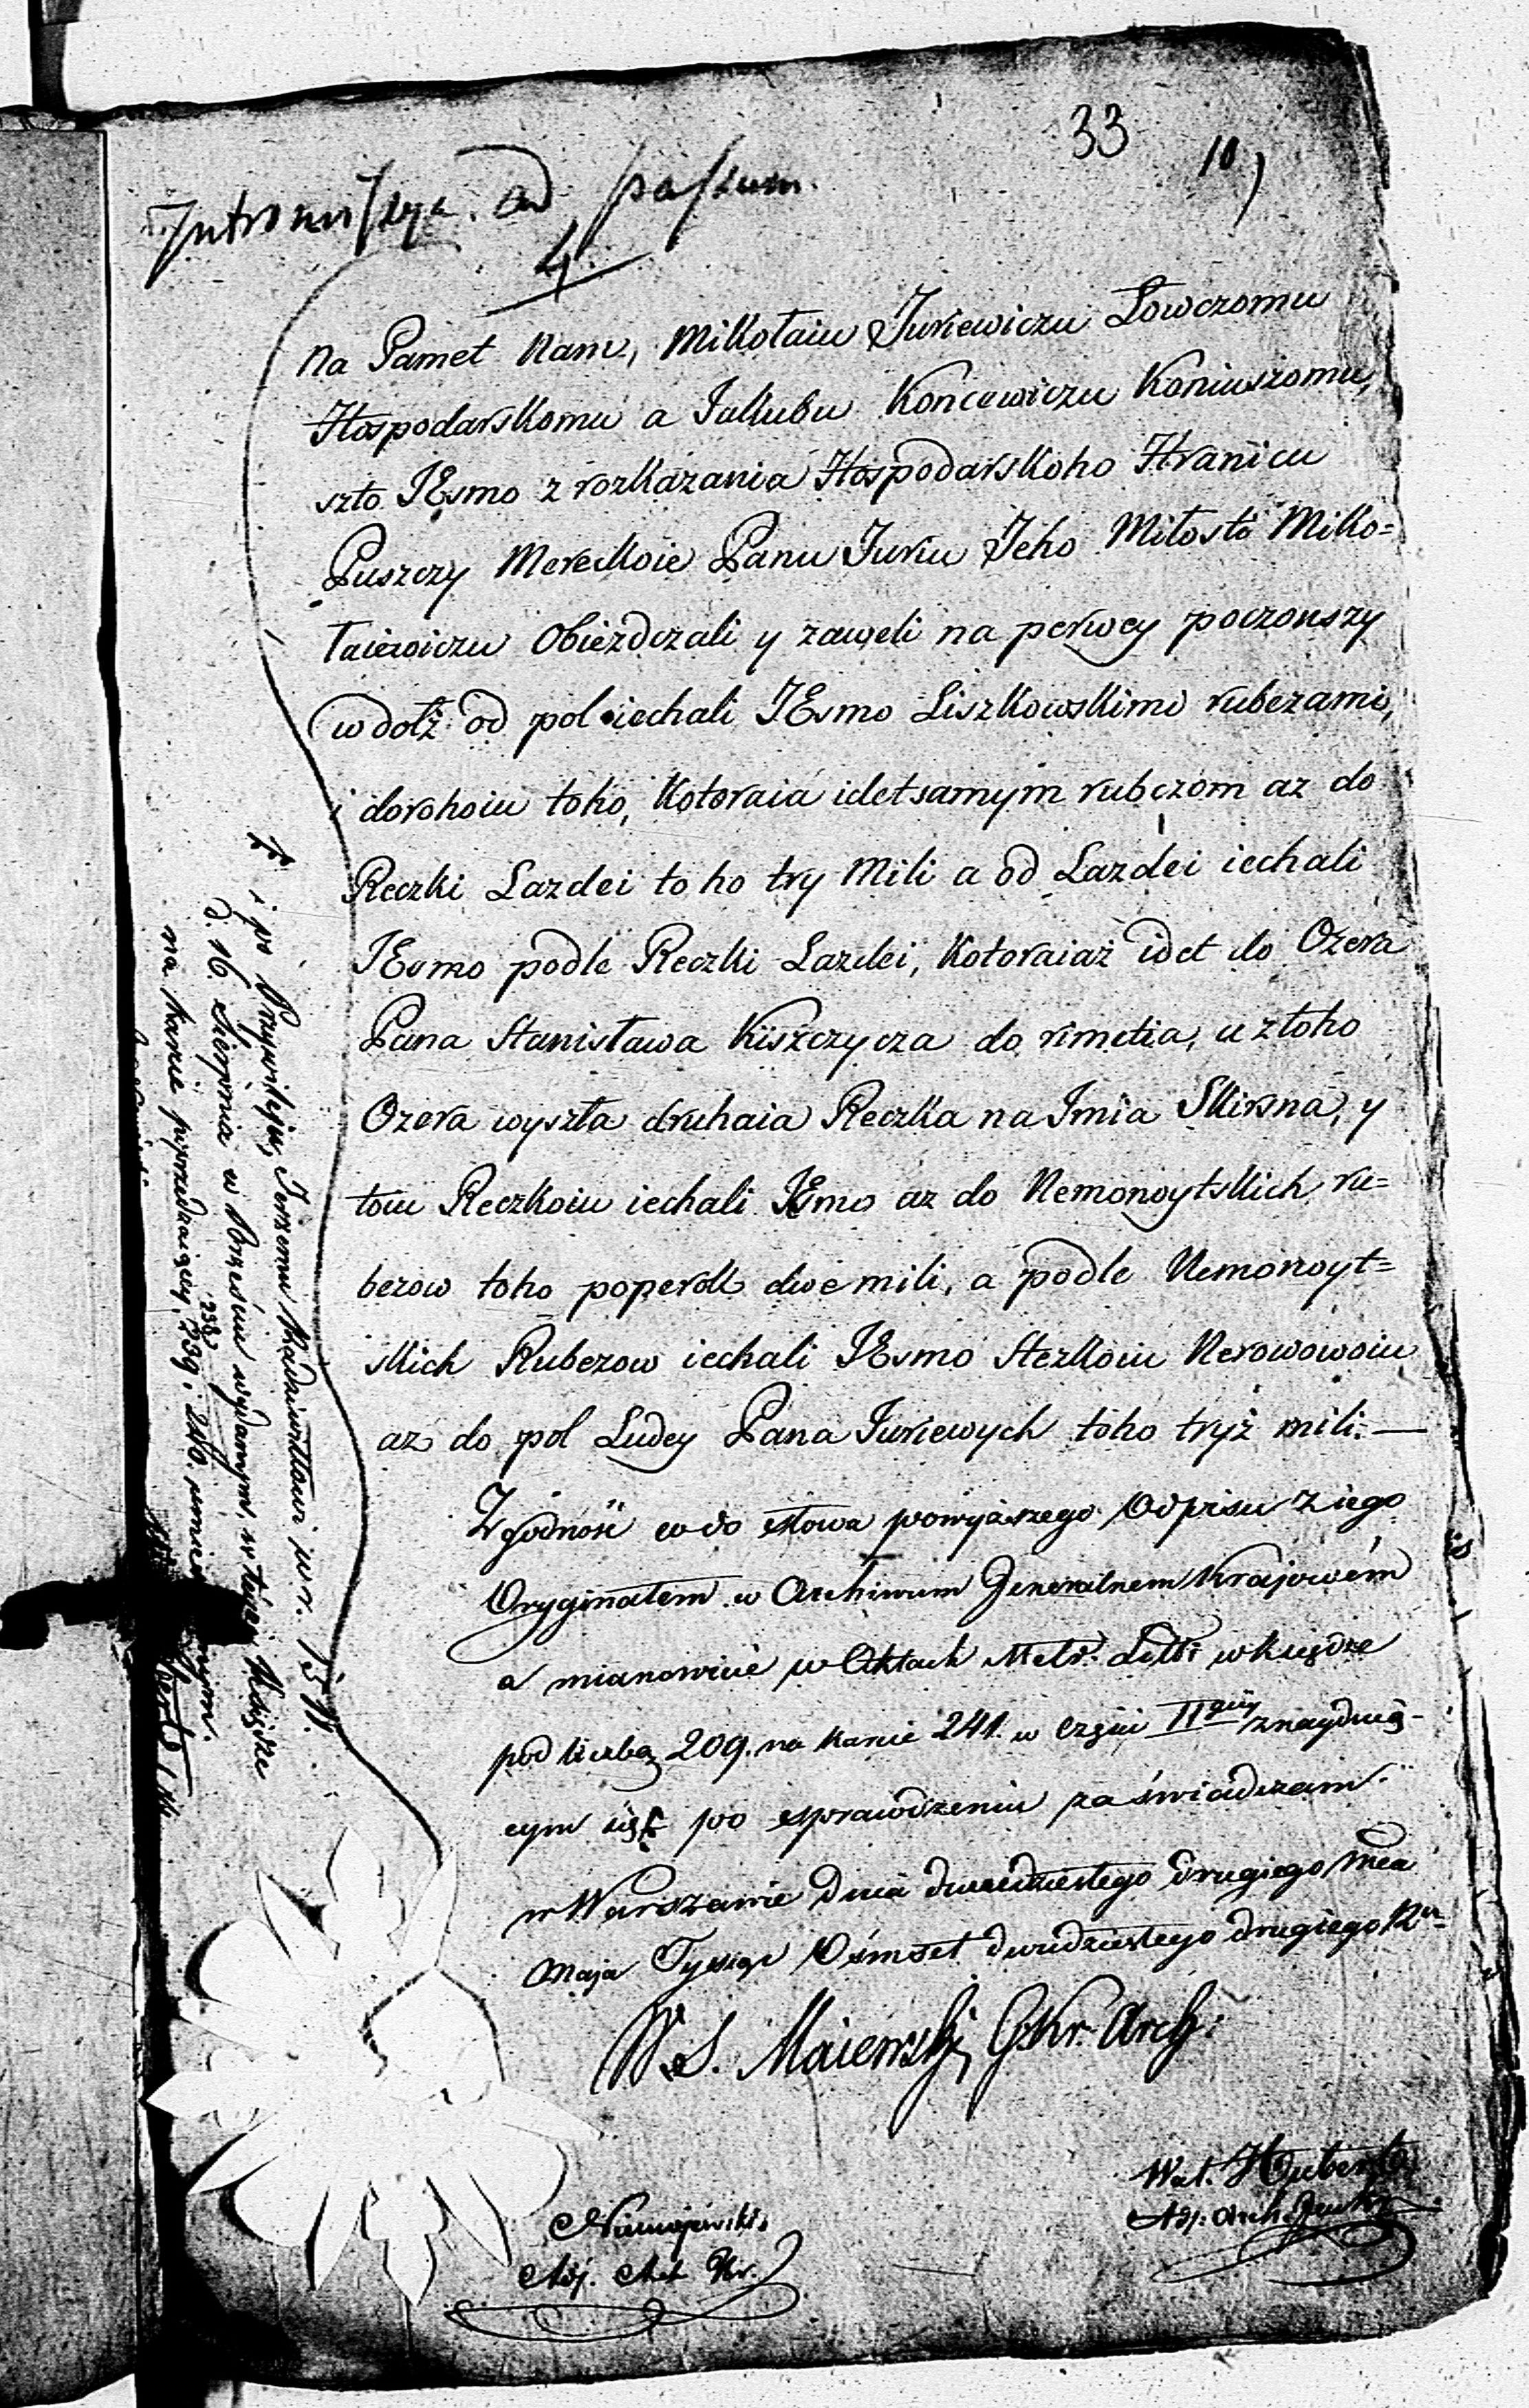 33
10)
Intromissya ad passum.
4.
Na Pamet Nam, Mikołaiu Juriewiczu Łowczomu
Hospodarskomu a Jakubu Koncewiczu Koniuszomu,
szto JEsmo z rozkazania Hospodarskoho Hranicu
Puszczy Mereckoie Panu Juriu Jeho Miłosti Miko=
łaiewiczu Obiezdczali y zaweli na perwey poczonszy
w dołż od pol iechali JEsmo Liszkowskimi rubezami,
i dorohoiu toho, Kotoraia idet samym rubezom az do
Reczki Lazdei toho try Mili a od Lazdei iechali
JEsmo podle Reczki Lazdei, Kotoraiaż idet do Ozera
Pana Stanisława Kiszczycza do rimetia, a z toho
Ozera wyszła druhaia Reczka na Imia Skirsna, y
toiu Reczkoiu iechali JEsmo az do Nemonoytskich ru=
bezow toho poperek dwe mili, a podle Nemonoyt=
skich Rubezow iechali JEsmo Stezkoiu Nerowowoiu
az do pol Ludey Pana Juriewych toho tryż mili. —
Zgodność co do słowa powyższego Odpisu z iego
Oryginałem w Archiwum Generalnem Krajowém
a mianowicie w Aktach Metr: Litt: w księdze
pod liczbą 209. na karcie 241. w części IIgiéy znayduią-
cym się po sprawdzeniu zaświadczam.
w Warszawie dnia dwudziestego drugiego Mca
Maja Tysiąc Ośmset dwudziestego drugiego Ru
W. S. Maiewski GKr. Arch:
Wal. Hubert
Adj. Arch.
Niemojewski
Adj. Met. Kr.
i po Przywileju, Jerzemu Radziwiłłowi w r. 151
d. 16. Sierpnia w Brześciu wydanym, w téjże Księdze
na karcie poprzedzaiącéy, 239. 240.
238